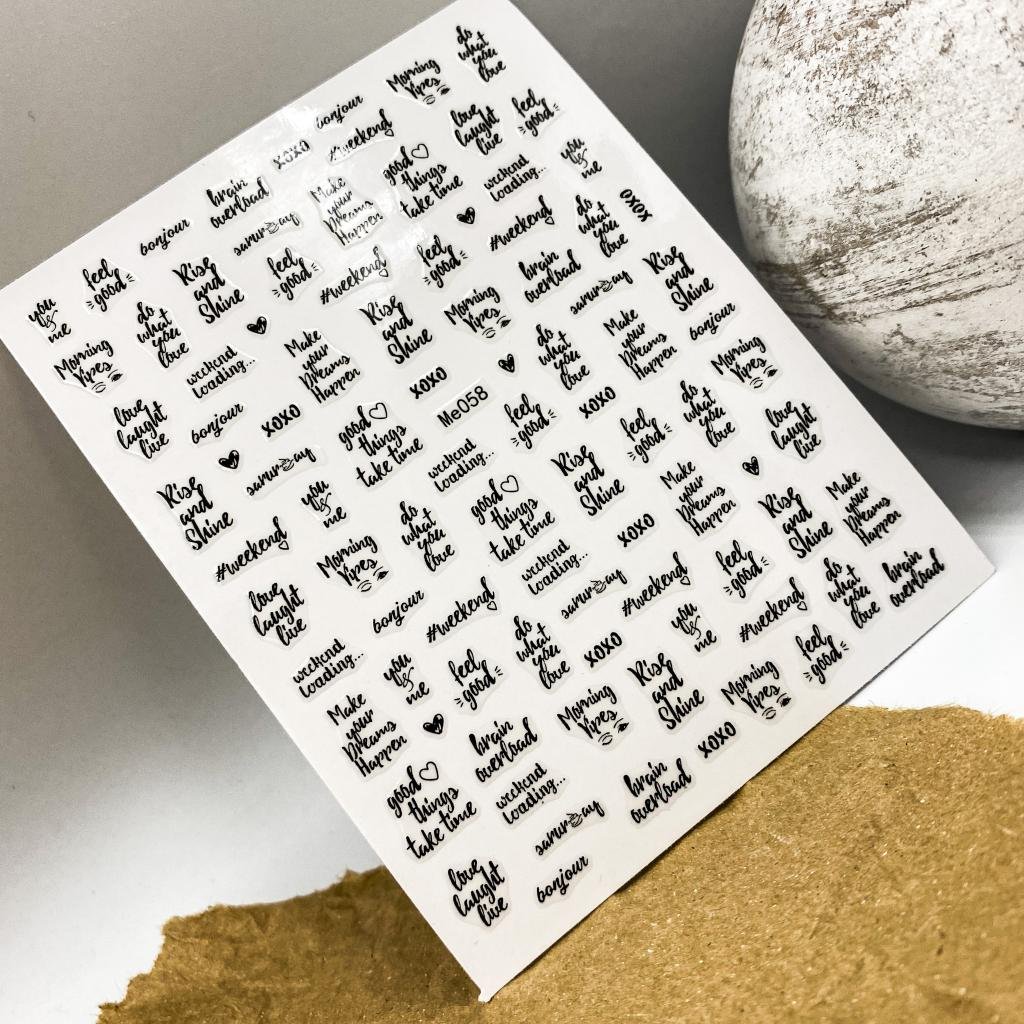 you
&
me
feel
good
bonjour
brain
overload
XOXO
bonjour
Morning
Vipes
do
what
you
love
Morning
Vipes
do
what
you
love
Rise
and
Shine
saturday
Make
your
Dreams
Happen
#weekend
love
laught
live
feel
good
weekend
loading...
feel
good
#weekend
good
things
take time
weekend
loading...
you
&
me
love
laught
live
bonjour
XOXO
Make
your
Dreams
Happen
Rise
and
Shine
feel
good
#weekend
do
what
you
love
XOXO
Rise
and
Shine
saturday
good
things
take time
XOXO
Morning
Vipes
brain
overload
saturday
Rise
and
Shine
#weekend
you
&
me
weekend
loading...
Me058
do
what
you
love
Make
your
Dreams
Happen
bonjour
Morning
Vipes
do
what
you
love
good
things
take time
feel
good
XOXO
Morning
Vipes
love
laught
live
bonjour
weekend
loading...
Rise
and
Shine
feel
good
do
what
you
love
love
laught
live
weekend
loading...
you
&
me
#weekend
saturday
XOXO
Make
your
Dreams
Happen
Make
your
Dreams
Happen
feel
good
do
what
you
love
XOXO
#weekend
feel
good
Rise
and
Shine
Make
your
Dreams
Happen
good
things
take time
brain
overload
Morning
Vipes
Rise
and
Shine
you
&
me
#weekend
do
what
you
love
brain
overload
weekend
loading...
brain
overload
XOXO
Morning
Vipes
feel
good
love
laught
live
saturday
bonjour